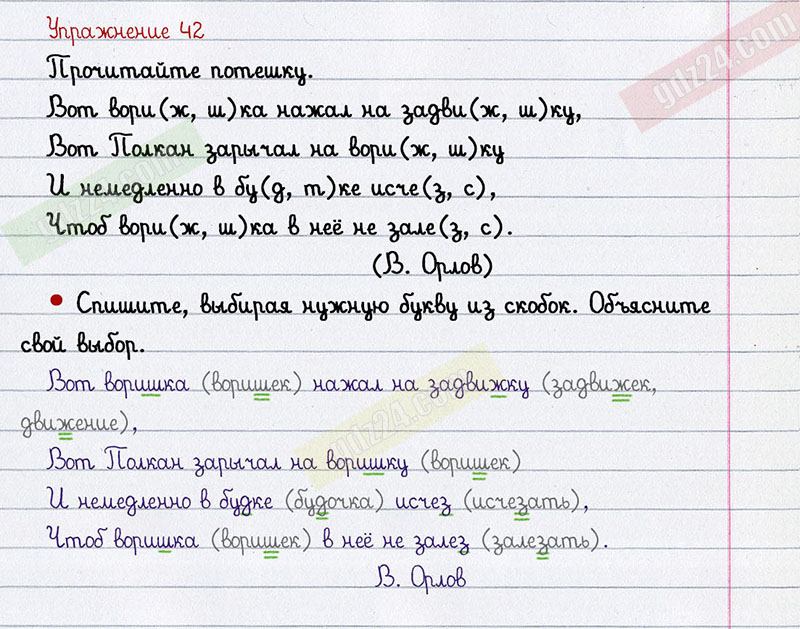 Упражнение 42
gdz24.com
Прочитайте потешку.
Вот вори(ж, ш)ка нажал на задви(ж, ш)ку,
Вот Полкан зарычал на вори(ж, ш)ку
И немедленно в бу(д, т)ке исче(з, с),
gdz24.com
Чтоб вори(ж, ш)ка в неё не зале(з, с).
(В. Орлов)
• Спишите, выбирая нужную букву из скобок. Объясните
свой выбор.
Вот воришка (воришек) нажал на задвижку (задвижек,
движение),
gdz24.com
Вот Полкан зарычал на воришку (воришек)
И немедленно в будке (будочка) исчез (исчезать),
Чтоб воришка (воришек) в неё не залез (залезать).
В. Орлов